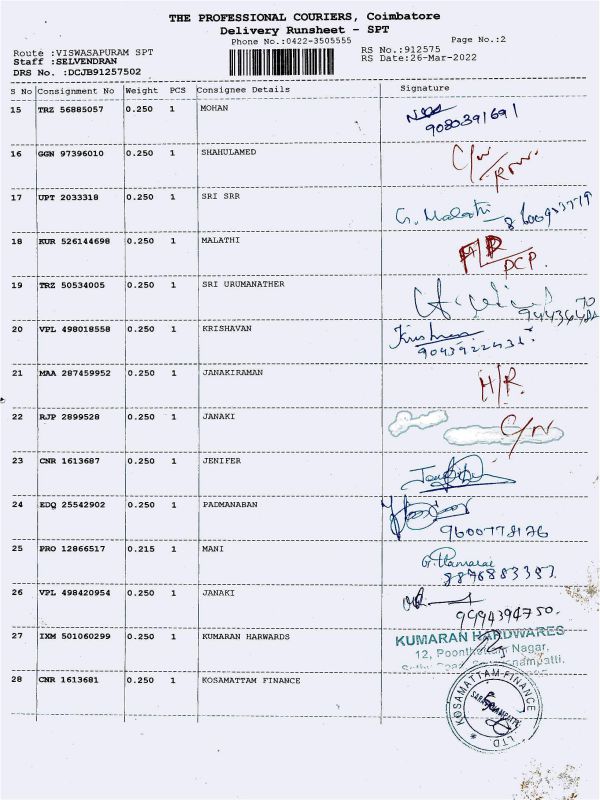 THE PROFESSIONAL COURIERS, Coimbatore
Delivery Runsheet - SPT
Phone No.:0422-3505555
Page No.:2
Route :VISWASAPURAM SPT
RS No.:912575
Staff :SELVENDRAN
RS Date:26-Mar-2022
DRS No. :DCJB91257502
S No Consignment No Weight PCS Consignee Details Signature
15 TRZ 56885057 0.250 1 MOHAN
9080391691
16 GGN 97396010 0.250 1 SHAHULAMED C/N
17 UPT 2033318 0.250 1 SRI SRR
G. Malathi
18 KUR 526144698 0.250 1 MALATHI
PCP.
19 TRZ 50534005 0.250 1 SRI URUMANATHER
20 VPL 498018558 0.250 1 KRISHAVAN Krishnan
21 MAA 287459952 0.250 1 JANAKIRAMAN H/R
22 RJP 2899528 0.250 1 JANAKI C/N
23 CNR 1613687 0.250 1 JENIFER
24 EDQ 25542902 0.250 1 PADMANABAN
25 PRO 12866517 0.215 1 MANI
26 VPL 498420954 0.250 1 JANAKI
9994394750.
27 IXM 501060299 0.250 1 KUMARAN HARWARDS KUMARAN HARDWARES
12, Nagar,
28 CNR 1613681 0.250 1 KOSAMATTAM FINANCE
KOSAMATTAM FINANCE LTD